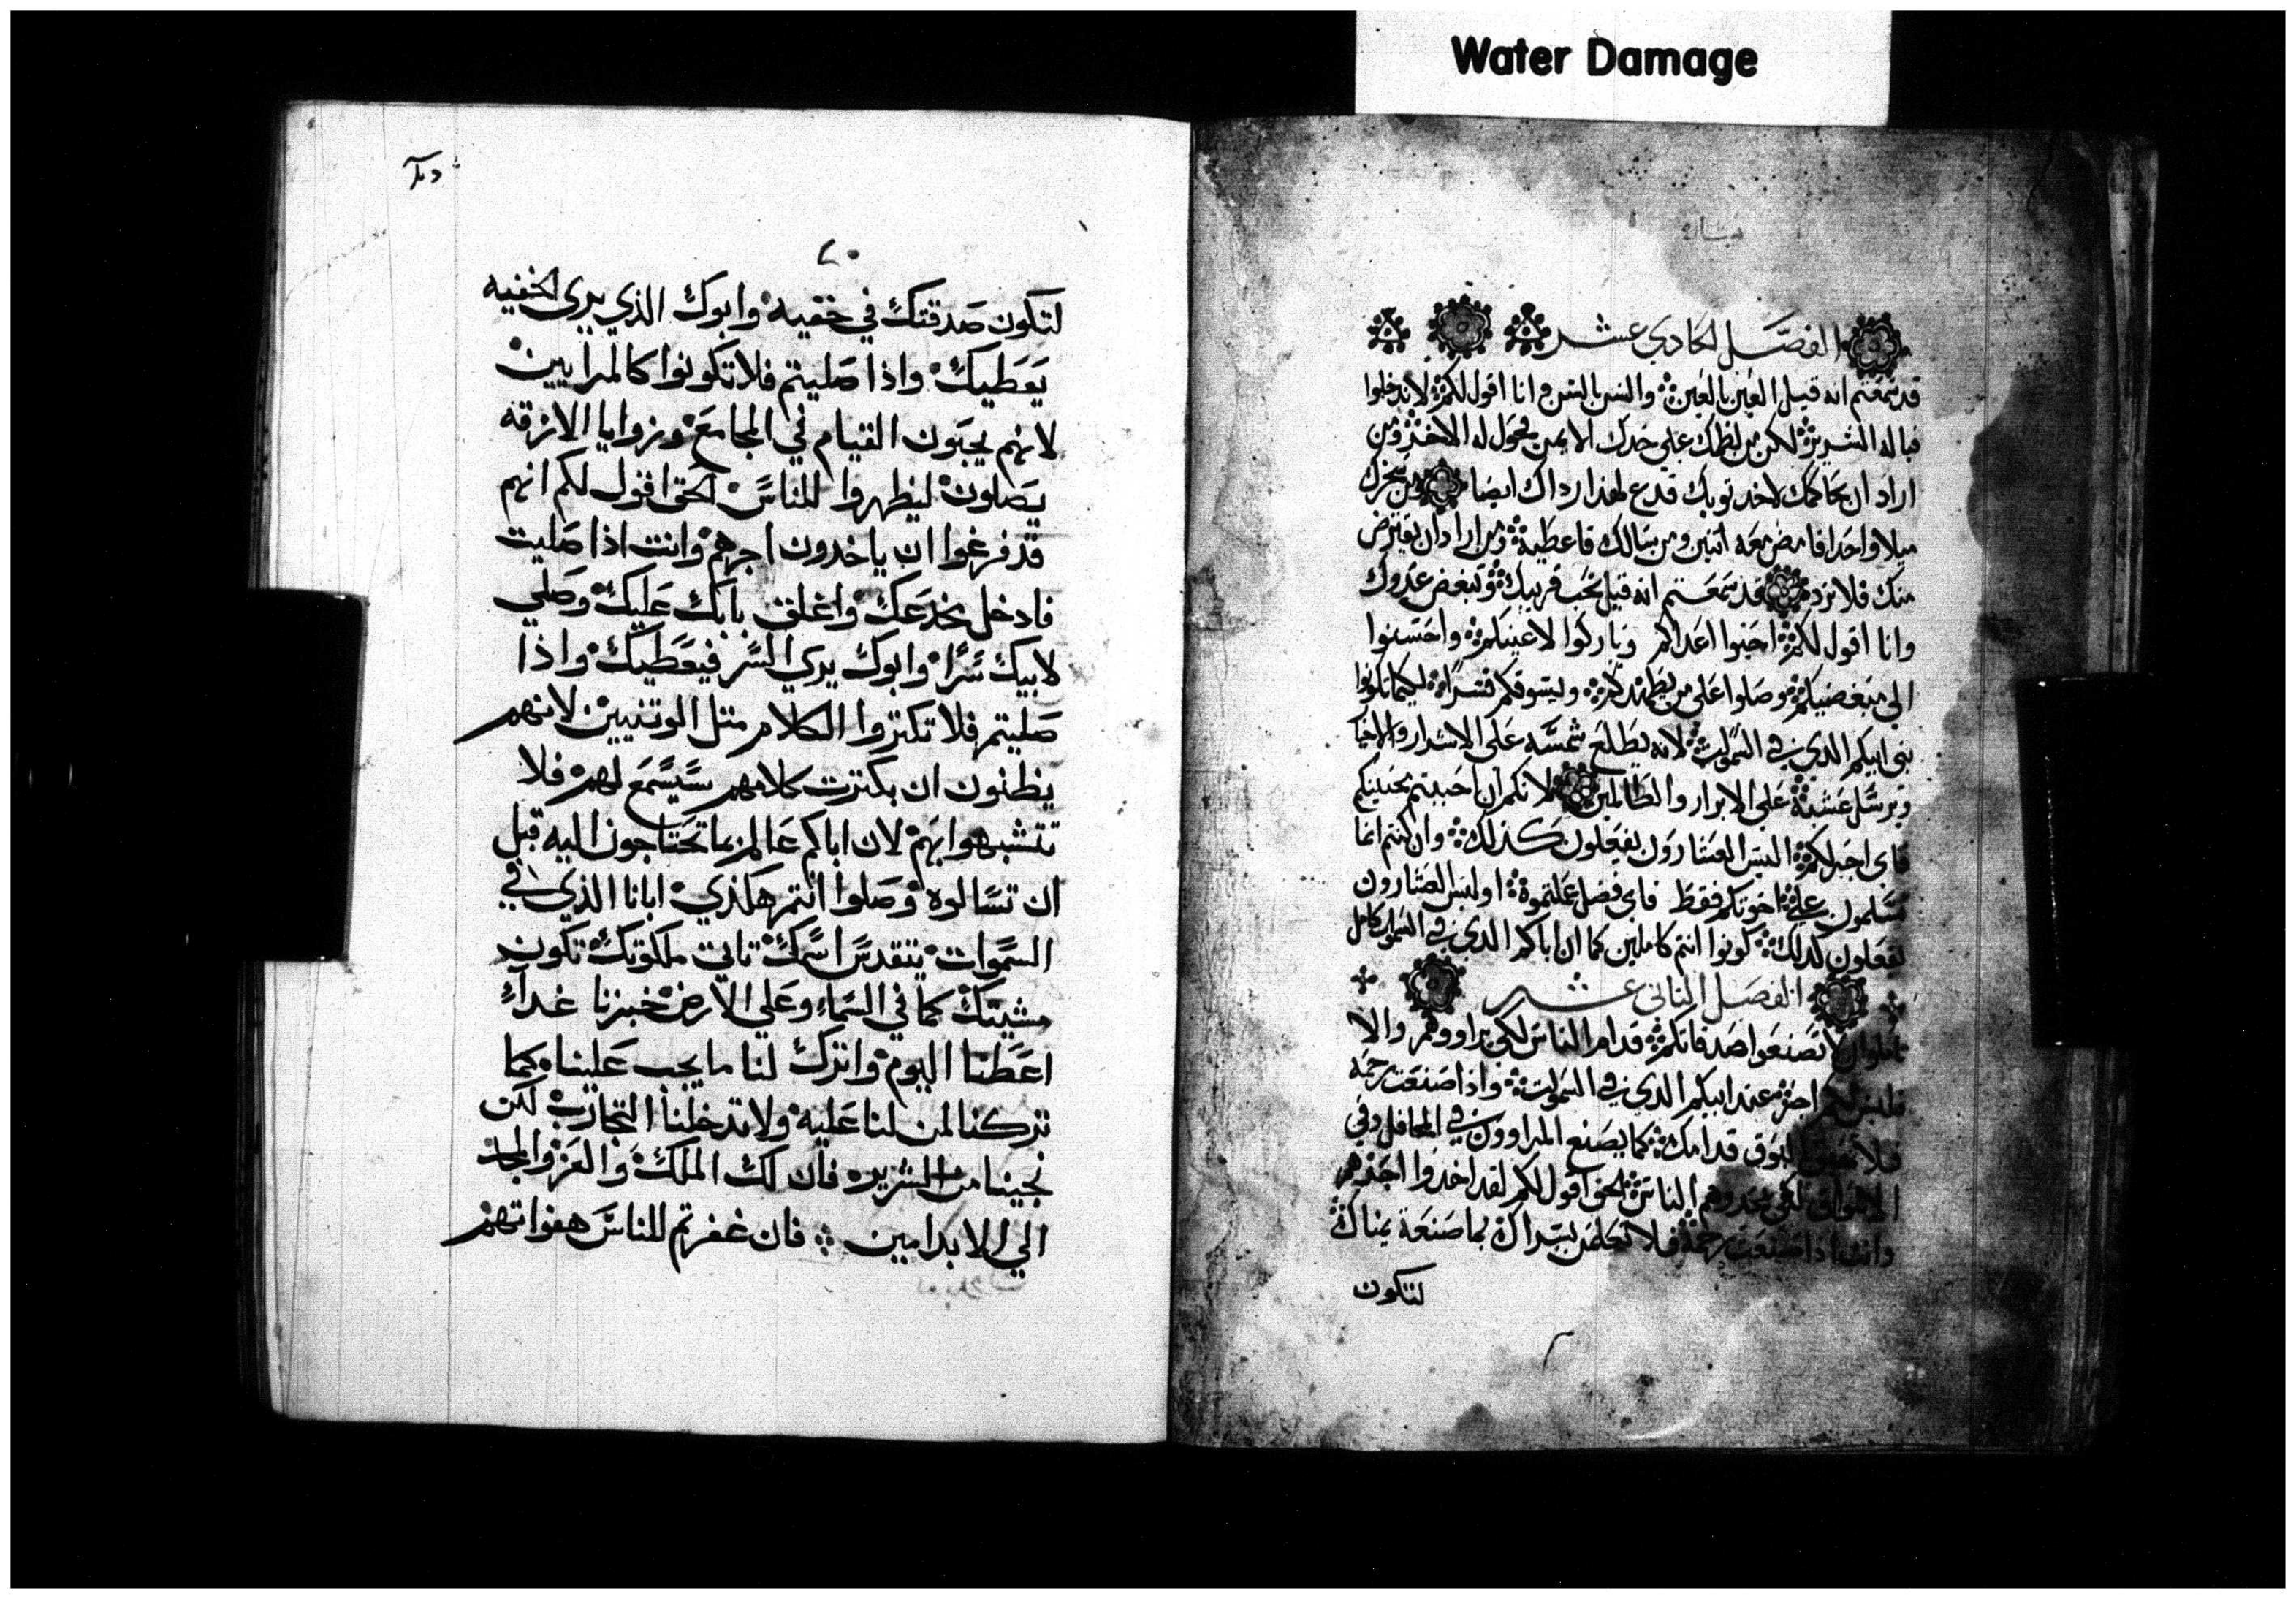 Water Damage
الفصل الحادي عشر
قد سمعتم انه قيل العين بالعين والسن بالسن وانا اقول لكم لا تدخلوا
قباله الشرير لكن من لطمك علي خدك الايمن فحول له الاخر ومن
اراد ان يحاكمك لاخد توبك فدع لهذا رداك ايضا ومن سخرك
ميلا واحدا فامض معه اتنين ومن سالك فاعطيه ومن اراد ان يقترض
منك فلا ترده قد سمعتم انه قيل تحب قريبك وتبغض عدوك
وانا اقول لكم احبوا اعداكم وباركوا لاعينكم واحسنوا
الي مبغضيكم وصلوا علي من يطهدكم ويسوقكم قسرا لكيما تكونوا
بني ابيكم الدي في السموات لانه يطلع شمسه علي الاشرار والاخيا
ويرسل غيثه علي الابرار والظالمين لانكم ان احببتم محبيكم
فاي اجر لكم اليس العشارون يفعلون كذلك وان كنتم انما
تسلمون علي اخوتكم فقط فاي فضل عملتموه اوليس العشارون
يفعلون كدلك كونوا انتم كاملين كما ان اباكم الدي في السموات كامل
الفصل التاني عشر
تاملوا ان لا تصنعوا صدقاتكم قدام الناس لكي يراووهم والا
فليس لكم اجر عند ابيكم الدي في السموات واذا صنعت رحمه
فلا البوق قدامك كما يصنع المراوون في المحافل وفي
الناس الحق اقول لكم لقد اخدوا اجرهم
وانت اذا صنعت رحمة فلا تعلمن يسراك بما صنعة يمناك
لتكون
لتكون صدقتك في خفيه وابوك الذي يري الخفيه
يعطيك واذا صليتم فلا تكونوا كالمرايين
لانهم يحبون القيام في المجامع وزوايا الازقه
يصلون ليظهروا للناس الحق اقول لكم انهم
قد فرغوا ان ياخدون اجرهم وانت اذا صليت
فادخل مخدعك واغلق بابك عليك وصلي
لابيك سرا وابوك يري السر فيعطيك واذا
صليتم فلا تكتروا الكلام متل الوتنيين لانهم
يظنون ان بكترت كلامهم سيسمع لهم فلا
تتشبهوا بهم لان اباكم عالم بما تحتاجون اليه قبل
ان تسالوه وصلوا انتم هكذي ابانا الذي في
السموات يتقدس اسمك تاتي ملكوتك تكون
مشيتك كما في السماء وعلي الارض خبزنا غداً
اعطنا اليوم واترك لنا ما يجب علينا كما
تركنا لمن لنا عليه ولا تدخلنا التجارب لكن
نجينا من الشرير فان لك الملك والعز والمجد
الي الابد امين فان غفرتم للناس هفواتهم